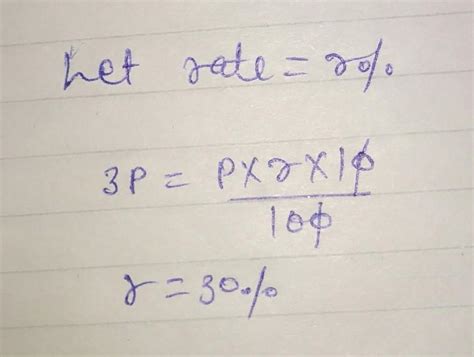 Let rate = r%
3P = P×r×10
100
r = 30%